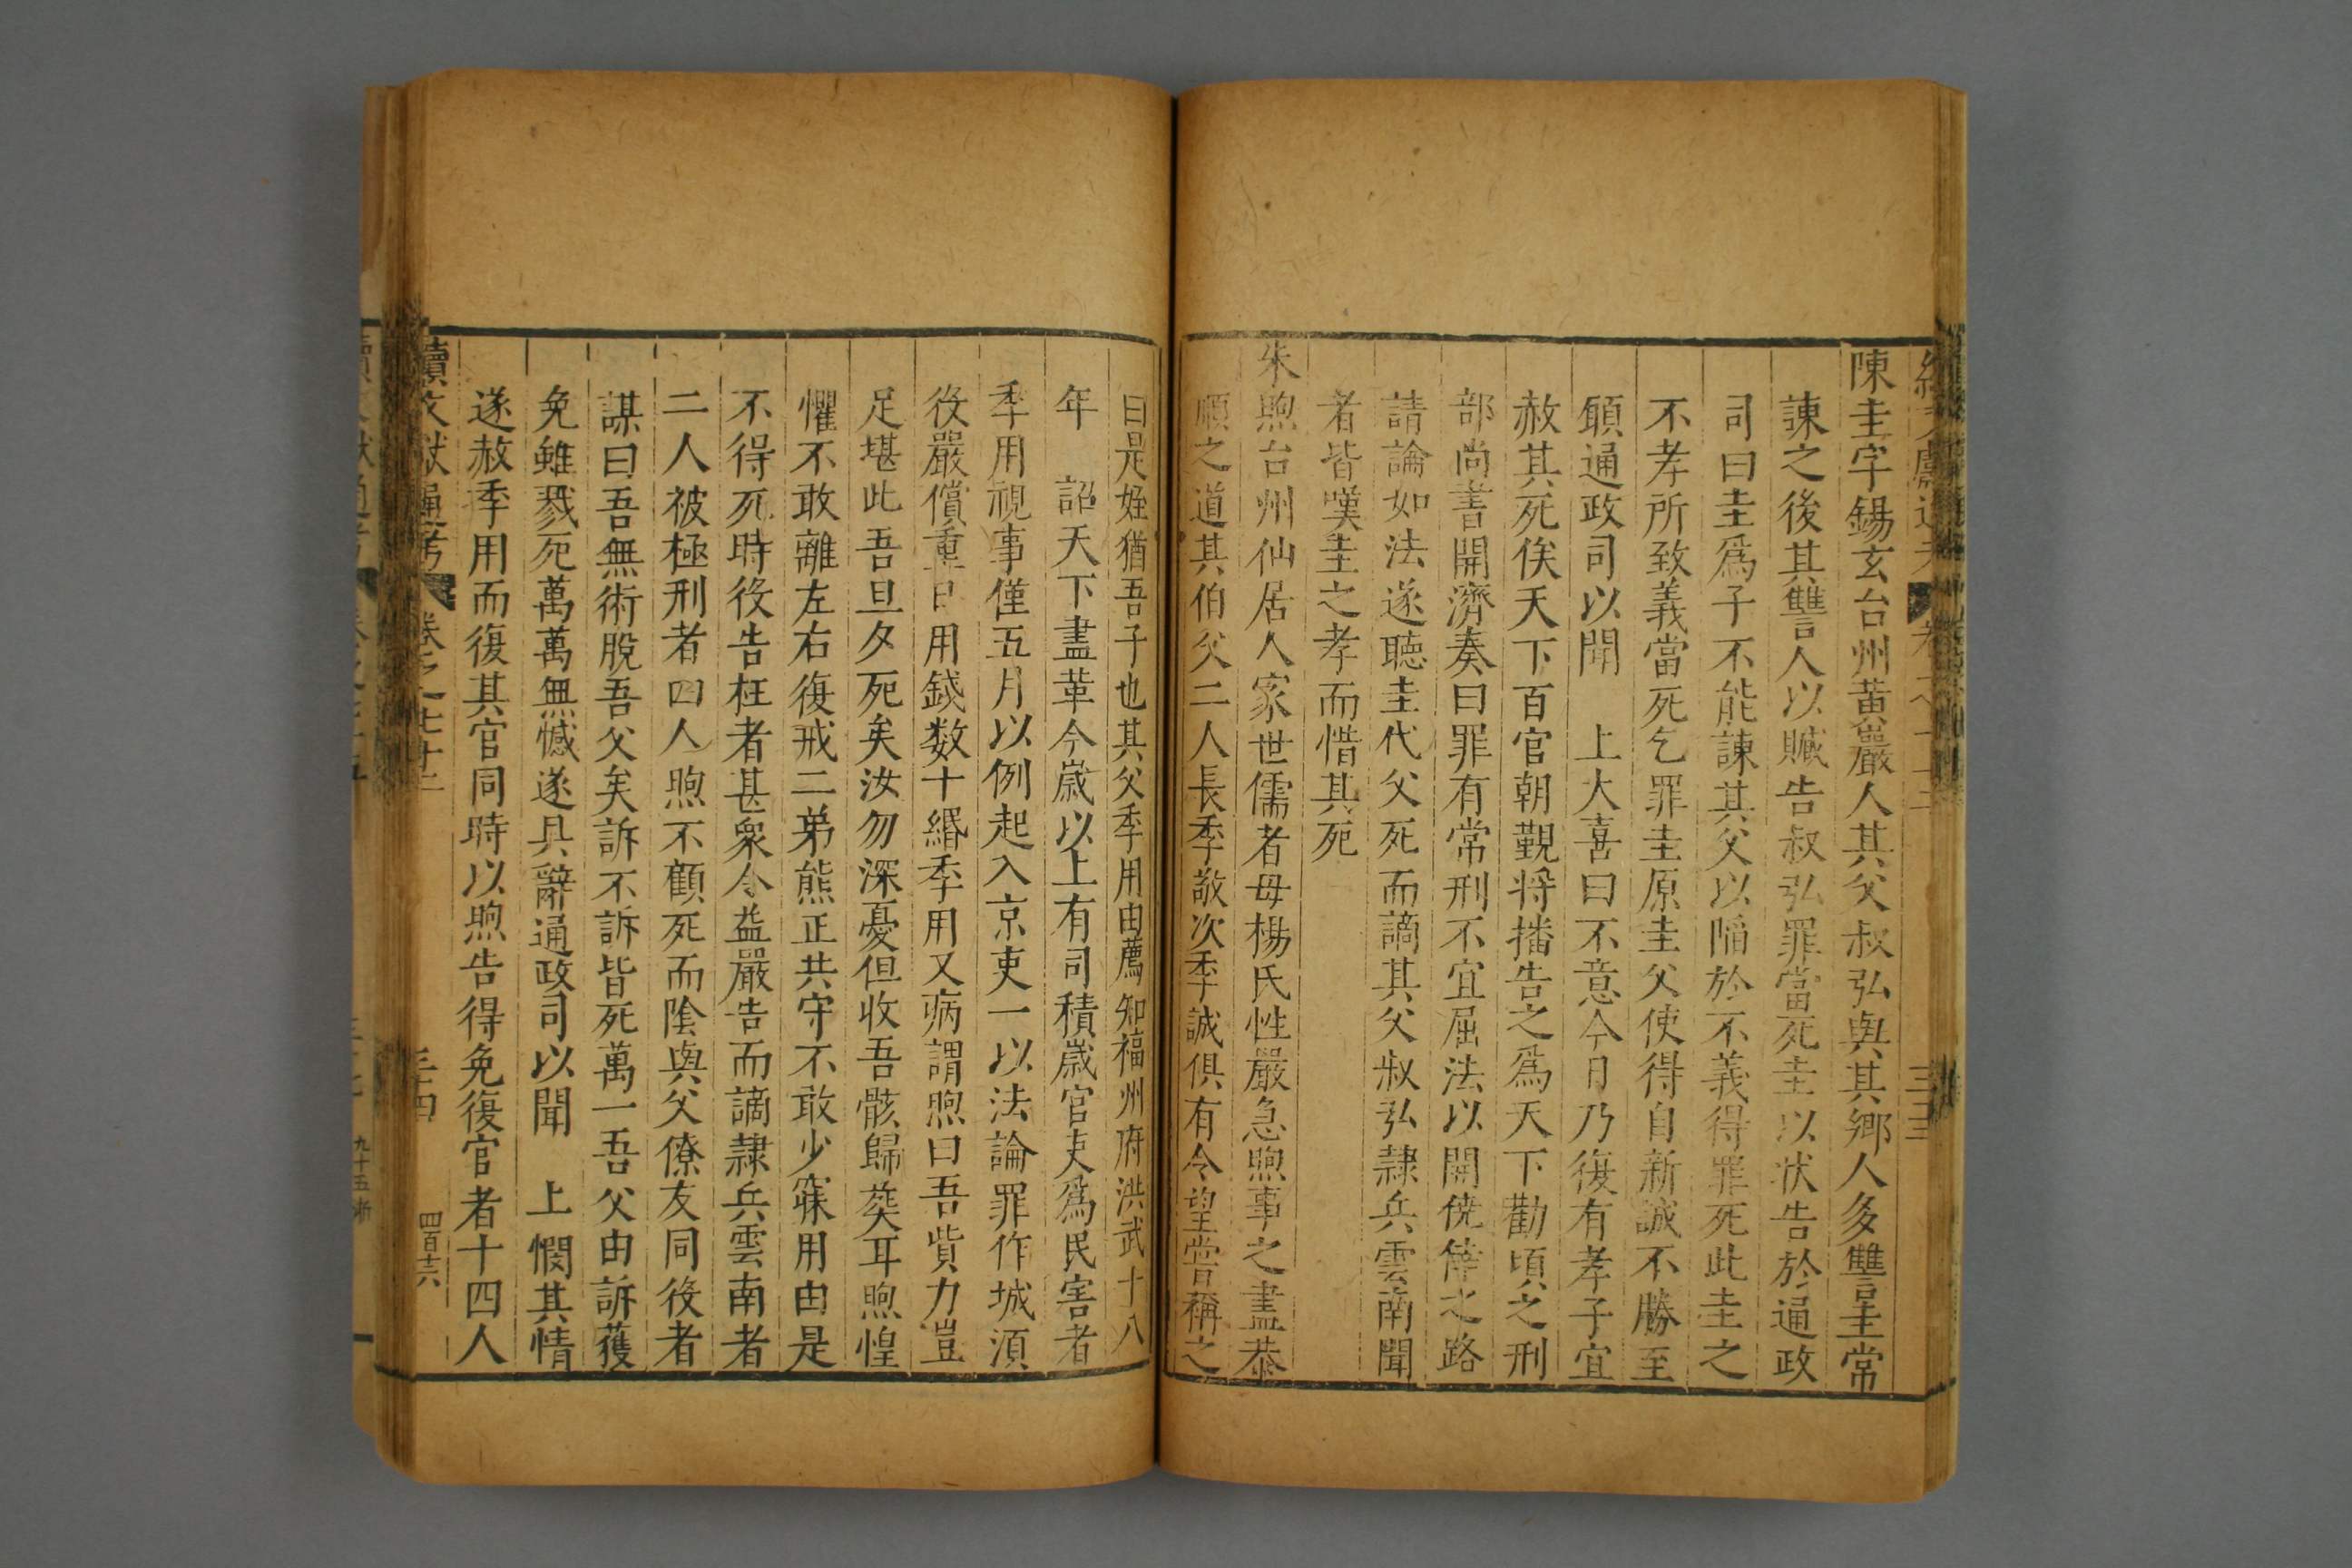 陳圭字錫玄台州黃巖人其父叔弘與其鄉人多讐圭常
諫之後其讐人以贓告叔弘罪當死圭以狀告於通政
司曰圭爲子不能諫其父以陷於不義得罪死此圭之
不孝所致義當死乞罪圭原圭父使得自新誠不勝至
願通政司以聞　上大喜曰不意今日乃復有孝子宜
赦其死俟天下百官朝覲将播告之爲天下勸頃之刑
部尚書開濟奏曰罪有常刑不宜屈法以開僥倖之路
請論如法遂聽圭代父死而謫其父叔弘隸兵雲南聞
者皆嘆圭之孝而惜其死
朱煦台州仙居人家世儒者母楊氏性嚴急煦事之盡恭
順之道其伯父二人長季敬次季誠俱有令望嘗稱之
曰是姪猶吾子也其父季用由薦知福州府洪武十八
年　詔天下盡革今歲以上有司積歲官吏爲民害者
季用視事僅五月以例起入京吏一以法論罪作城湏
役嚴償重日用錢数十緡季用又病謂煦曰吾貲力豈
足堪此吾旦夕死矣汝勿深憂但收吾骸歸葬耳煦惶
懼不敢離左右復戒二弟熊正共守不敢少寐用由是
不得死時役告枉者甚衆令益嚴告而謫隷兵雲南者
二人被極刑者四人煦不顧死而陰與父僚友同役者
謀曰吾無術脫吾父矣訴不訴皆死萬一吾父由訴獲
免雖戮死萬萬無憾遂具辭通政司以聞　上憫其情
遂赦季用而復其官同時以煦告得免復官者十四人
續文獻通考　卷之七十二　三十四　四百十六